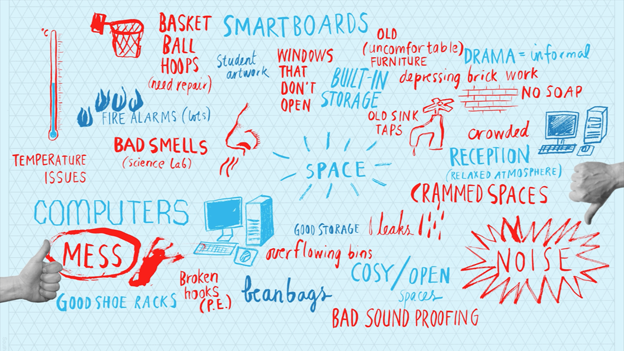 BASKET
BALL
HOOPS
(need repair)
SMARTBOARDS
Student
artwork
WINDOWS
THAT
DON'T
OPEN
BUILT-IN
STORAGE
OLD
(uncomfortable)
FURNITURE
DRAMA = informal
depressing brick work
NO SOAP
°C
FIRE ALARMS (lots)
OLD SINK
TAPS
crowded
BAD SMELLS
(science lab)
TEMPERATURE
ISSUES
SPACE
RECEPTION
(RELAXED ATMOSPHERE)
CRAMMED SPACES
COMPUTERS
GOOD STORAGE
leaks
MESS
overflowing bins
NOISE
COSY/OPEN
spaces
GOOD SHOE RACKS
Broken
hooks
(P.E.)
beanbags
BAD SOUND PROOFING